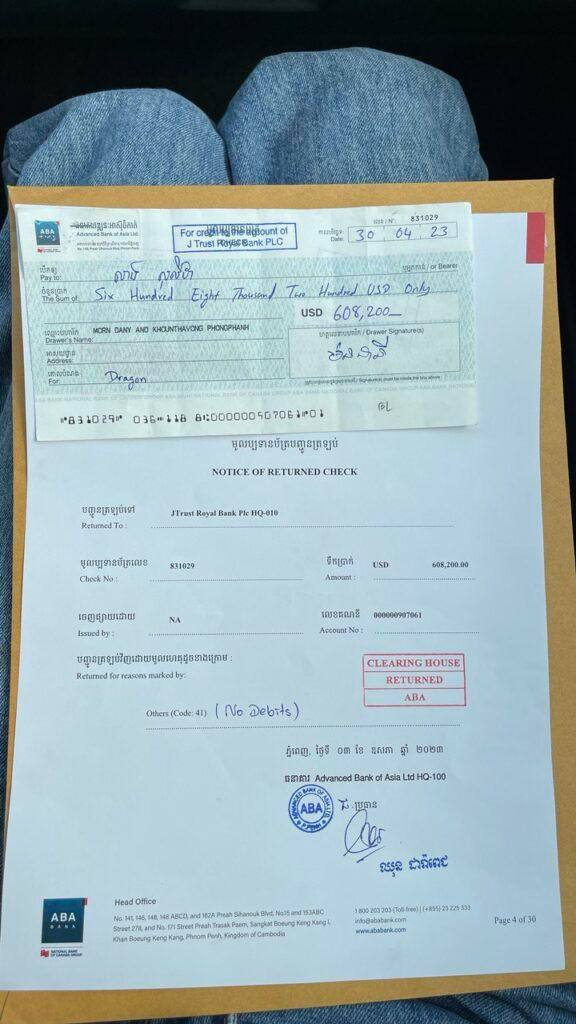 ABA
Advanced Bank of Asia Ltd.
For credit to the account of
J Trust Royal Bank PLC
លេខ / N°: 831029
កាលបរិច្ឆេទ
Date: 30 04 23
បើកឲ្យ
Pay to:
ឬអ្នកកាន់ / or Bearer
ចំនួនប្រាក់
The Sum of: Six Hundred Eight Thousand Two Hundred USD Only
USD 608,200
ឈ្មោះម្ចាស់គណនី
Drawer's Name: MORN DANY AND KHOUNTHAVONG PHONGPHANH
ហត្ថលេខាម្ចាស់គណនី / Drawer Signature(s)
អាសយដ្ឋាន
Address:
គោលបំណង
For: Dragon
⑈831029⑈ 036⑉118 8⑆000000907061⑈01
មូលប្បទានប័ត្របញ្ជូនត្រឡប់
NOTICE OF RETURNED CHECK
បញ្ជូនត្រឡប់ទៅ
Returned To : JTrust Royal Bank Plc HQ-010
មូលប្បទានប័ត្រលេខ
Check No : 831029
ទឹកប្រាក់
Amount : USD 608,200.00
ចេញផ្សាយដោយ
Issued by : NA
លេខគណនី
Account No : 000000907061
បញ្ជូនត្រឡប់វិញដោយមូលហេតុដូចខាងក្រោម :
Returned for reasons marked by:
CLEARING HOUSE
RETURNED
ABA
Others (Code: 41) (No Debits)
ភ្នំពេញ, ថ្ងៃទី ០៣ ខែ ឧសភា ឆ្នាំ ២០២៣
ធនាគារ Advanced Bank of Asia Ltd HQ-100
ADVANCED BANK OF ASIA LTD.
ABA
P.PENH
ប្រធាន
ABA
BANK
NATIONAL BANK
OF CANADA GROUP
Head Office
No. 141, 146, 148, 148 ABCD, and 162A Preah Sihanouk Blvd, No15 and 153ABC
Street 278, and No. 171 Street Preah Trasak Paem, Sangkat Boeung Keng Kang I,
Khan Boeung Keng Kang, Phnom Penh, Kingdom of Cambodia
1 800 203 203 (Toll-free) | (+855) 23 225 333
info@ababank.com
www.ababank.com
Page 4 of 30